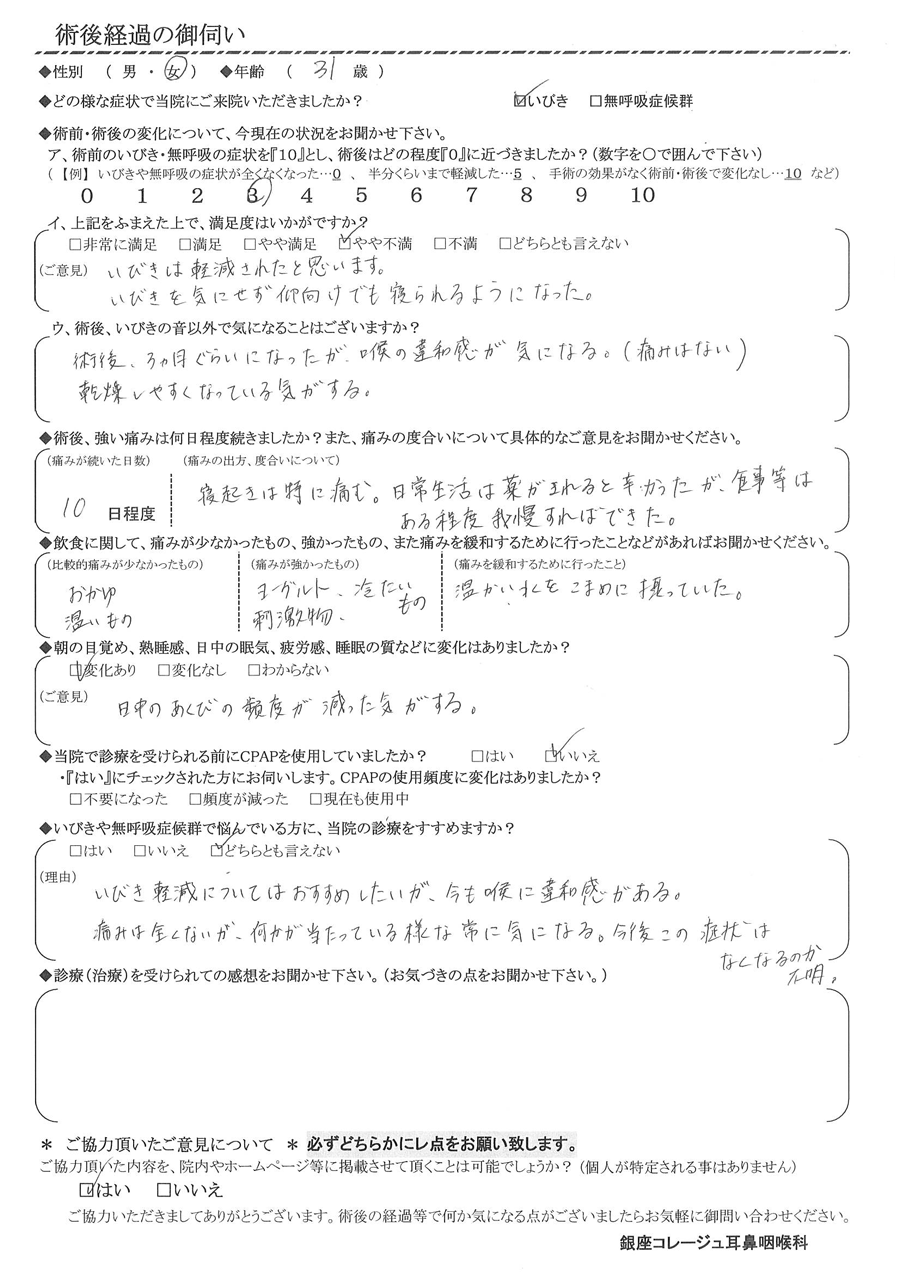 術後経過の御伺い
◆性別 （ 男 ・ 女 ） ◆年齢 （ 31 歳 ）
◆どの様な症状で当院にご来院いただきましたか？ ☑いびき □無呼吸症候群
◆術前・術後の変化について、今現在の状況をお聞かせ下さい。
ア、術前のいびき・無呼吸の症状を『10』とし、術後はどの程度『0』に近づきましたか？（数字を○で囲んで下さい）
（ 【例】 いびきや無呼吸の症状が全くなくなった…0 、 半分くらいまで軽減した…5 、 手術の効果がなく術前・術後で変化なし…10 など）
0 1 2 3 4 5 6 7 8 9 10
イ、上記をふまえた上で、満足度はいかがですか？
□非常に満足 □満足 □やや満足 ☑やや不満 □不満 □どちらとも言えない
（ご意見） いびきは軽減されたと思います。
いびきを気にせず仰向けでも寝られるようになった。
ウ、術後、いびきの音以外で気になることはございますか？
術後、3ヵ月ぐらいになったが、喉の違和感が気になる。（痛みはない）
乾燥しやすくなっている気がする。
◆術後、強い痛みは何日程度続きましたか？また、痛みの度合いについて具体的なご意見をお聞かせください。
（痛みが続いた日数） （痛みの出方、度合いについて）
10 日程度 寝起きは特に痛む。日常生活は薬がきれると辛かったが、食事等は
ある程度我慢すればできた。
◆飲食に関して、痛みが少なかったもの、強かったもの、また痛みを緩和するために行ったことなどがあればお聞かせください。
（比較的痛みが少なかったもの） （痛みが強かったもの） （痛みを緩和するために行ったこと）
おかゆ ヨーグルト、冷たいもの 温かい水をこまめに摂っていた。
温いもの 刺激物、
◆朝の目覚め、熟睡感、日中の眠気、疲労感、睡眠の質などに変化はありましたか？
☑変化あり □変化なし □わからない
（ご意見） 日中のあくびの頻度が減った気がする。
◆当院で診療を受けられる前にCPAPを使用していましたか？ □はい ☑いいえ
・『はい』にチェックされた方にお伺いします。CPAPの使用頻度に変化はありましたか？
□不要になった □頻度が減った □現在も使用中
◆いびきや無呼吸症候群で悩んでいる方に、当院の診療をすすめますか？
□はい □いいえ ☑どちらとも言えない
（理由）
いびき軽減についてはおすすめしたいが、今も喉に違和感がある。
痛みは全くないが、何かが当たっている様な常に気になる。今後この症状は
なくなるのか
不明。
◆診療（治療）を受けられての感想をお聞かせ下さい。（お気づきの点をお聞かせ下さい。）
＊ ご協力頂いたご意見について ＊ 必ずどちらかにレ点をお願い致します。
ご協力頂いた内容を、院内やホームページ等に掲載させて頂くことは可能でしょうか？（個人が特定される事はありません）
☑はい □いいえ
ご協力いただきましてありがとうございます。術後の経過等で何か気になる点がございましたらお気軽に御問い合わせください。
銀座コレージュ耳鼻咽喉科